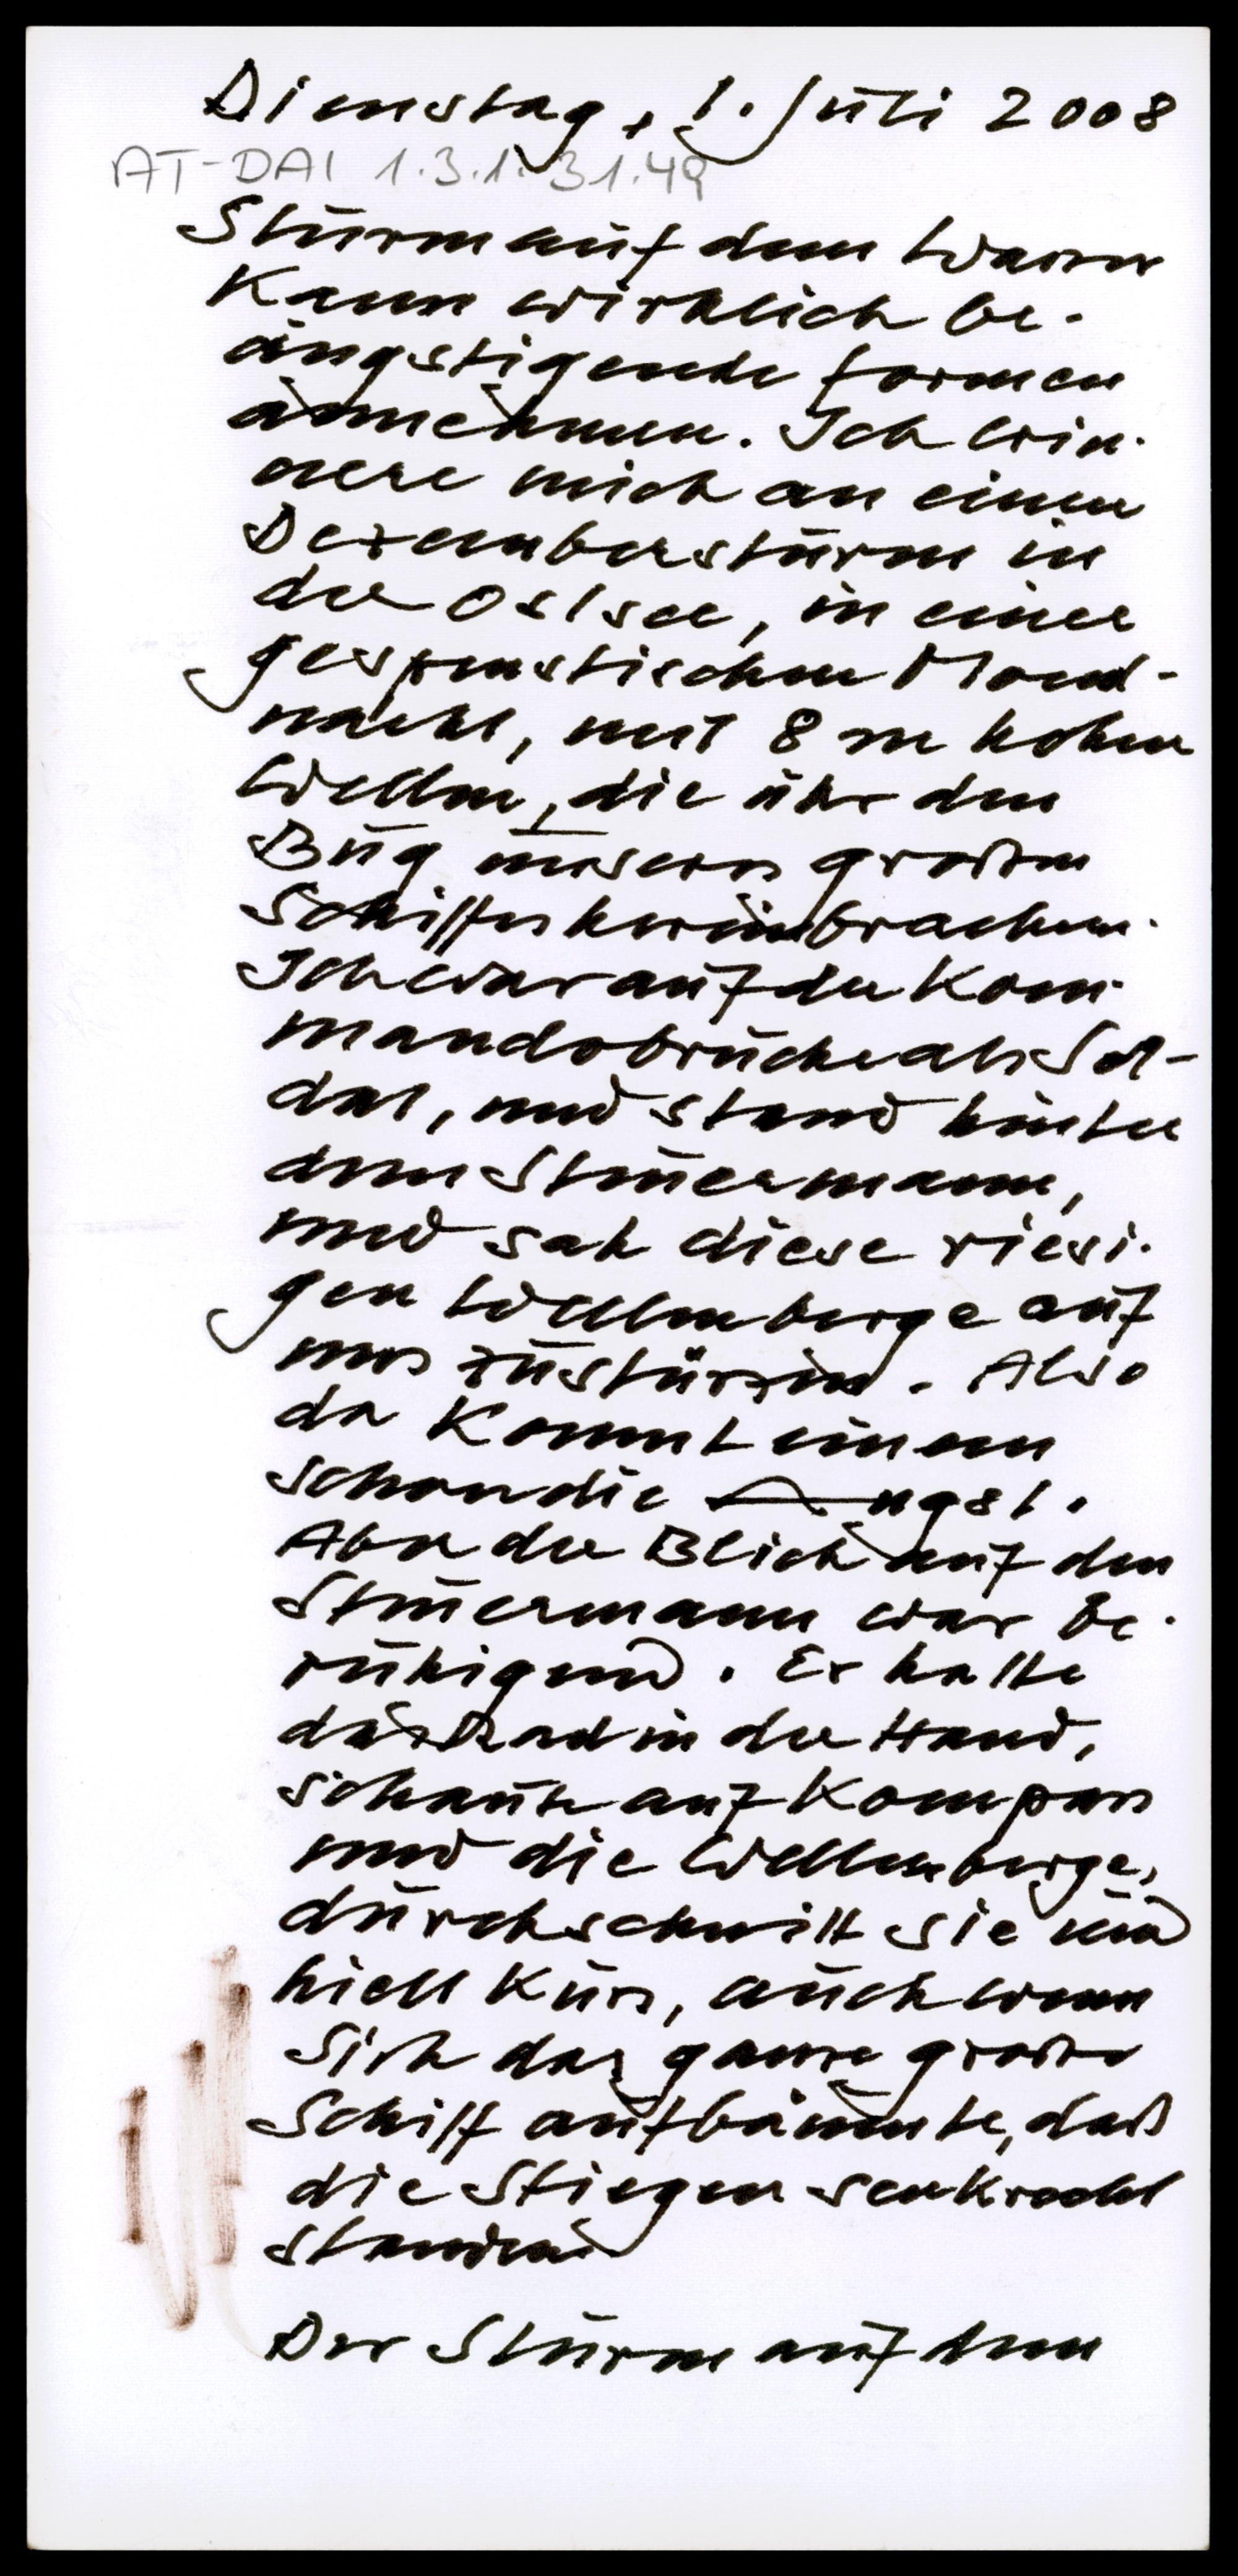 Dienstag, 1. Juli 2008
AT-DAI 1.3.1.31.49
Sturm auf dem Wasser
kann wirklich be-
ängstigende Formen
annehmen. Ich erin-
nere mich an einen
Dezembersturm in
der Ostsee, in einer
gespenstischen Mond-
nacht, mit 8 m hohen
Wellen, die über den
Bug unseres großen
Schiffes hereinbrachen.
Ich war auf der Kom-
mandobrücke als Sol-
dat, und stand hinter
dem Steuermann,
und sah diese riesi-
gen Wellenberge auf
uns zustürzen. Also
da kommt einem
schon die Angst.
Aber der Blick auf den
Steuermann war be-
ruhigend. Er hatte
das Rad in der Hand,
schaute auf Kompass
und die Wellenberge,
durchschnitt sie und
hielt Kurs, auch wenn
sich das ganze große
Schiff aufbäumte, daß
die Stiegen senkrecht
standen.
Der Sturm auf dem